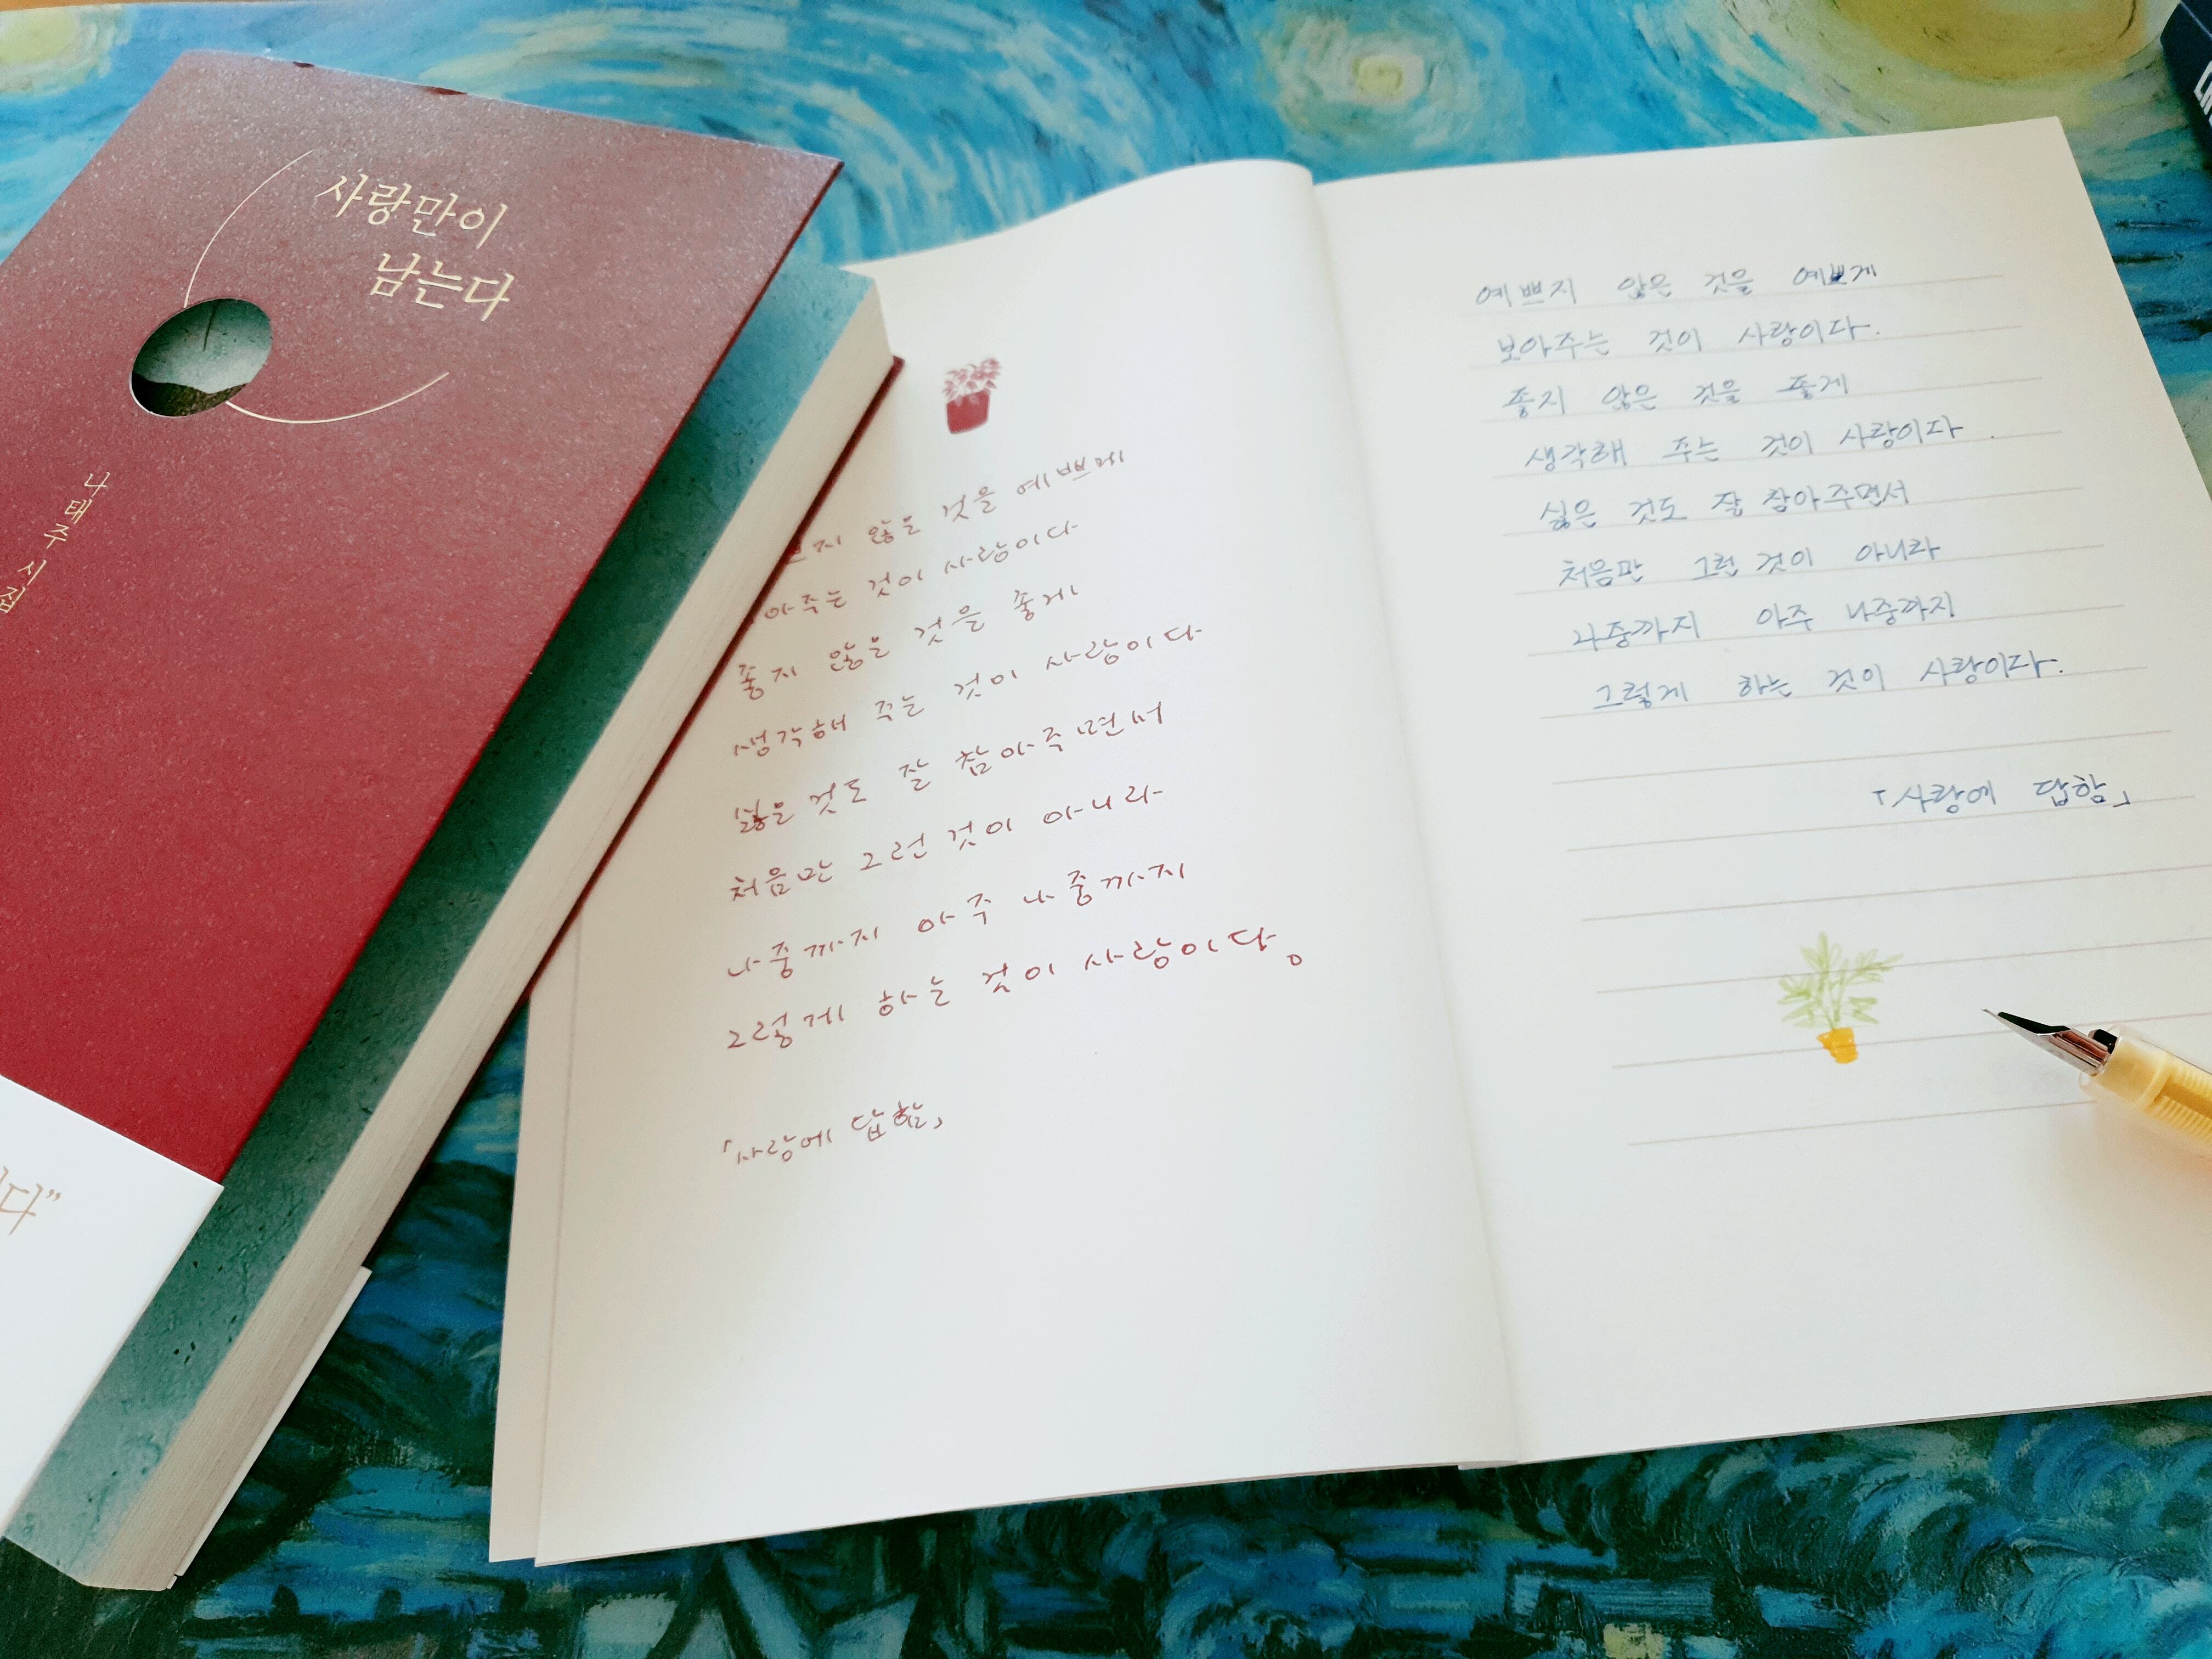 사랑만이
남는다
나태주 시집
다”
쁘지 않은 것을 예쁘게
아주는 것이 사랑이다
좋지 않은 것을 좋게
생각해 주는 것이 사랑이다
싫은 것도 잘 참아주면서
처음만 그런 것이 아니라
나중까지 아주 나중까지
그렇게 하는 것이 사랑이당。
「사랑에 답함」
예쁘지 않은 것을 예쁘게
보아주는 것이 사랑이다.
좋지 않은 것을 좋게
생각해 주는 것이 사랑이다.
싫은 것도 잘 참아주면서
처음만 그런 것이 아니라
나중까지 아주 나중까지
그렇게 하는 것이 사랑이다.
「사랑에 답함」